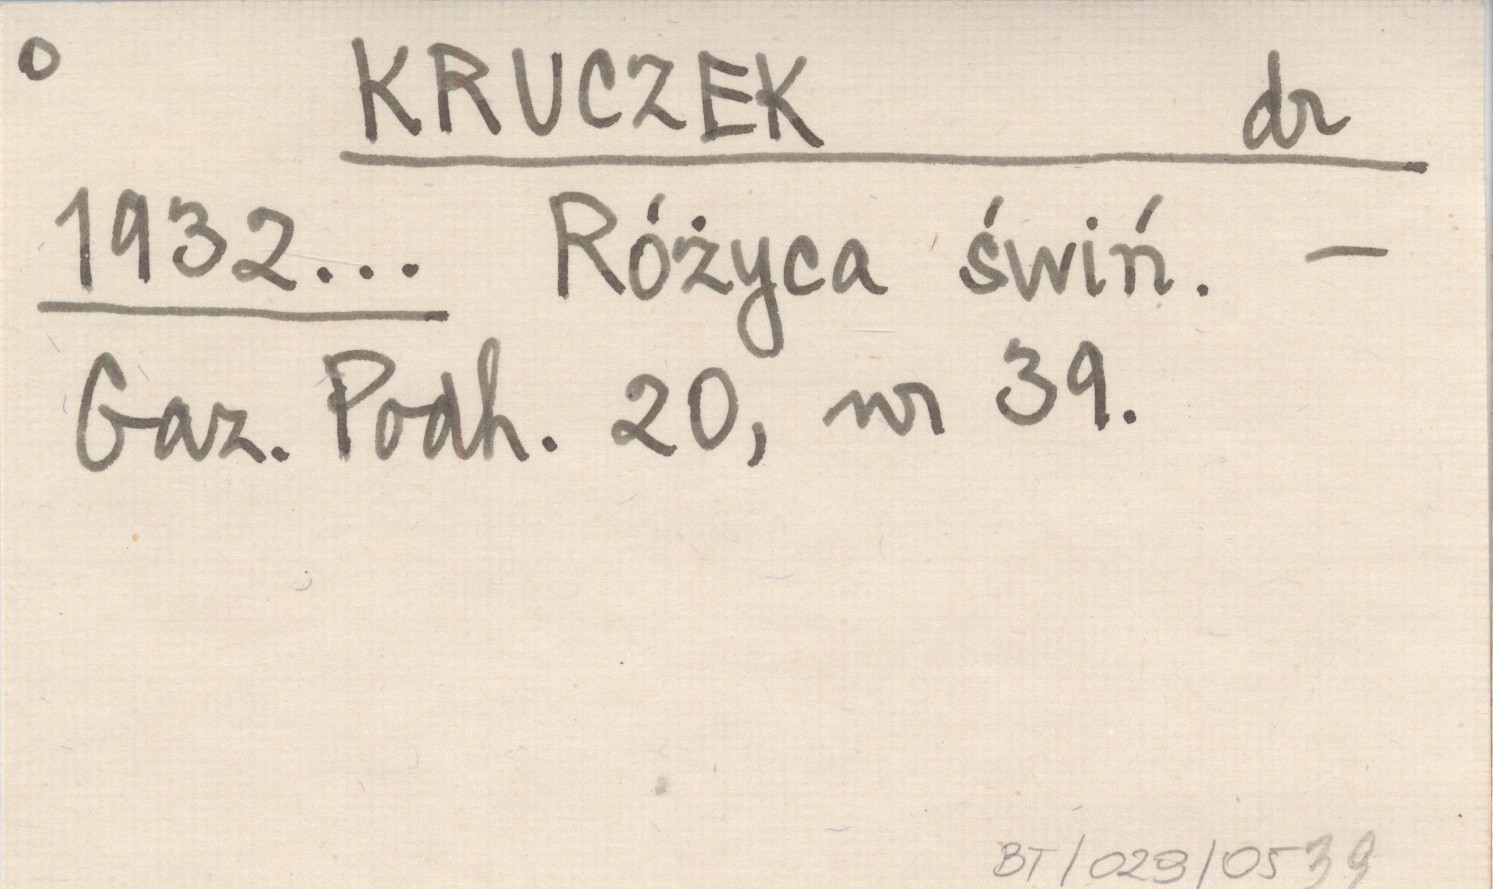 o KRUCZEK dr
1932... Różyca świń. —
Gaz. Podh. 20, nr 39.
BT/029/0539